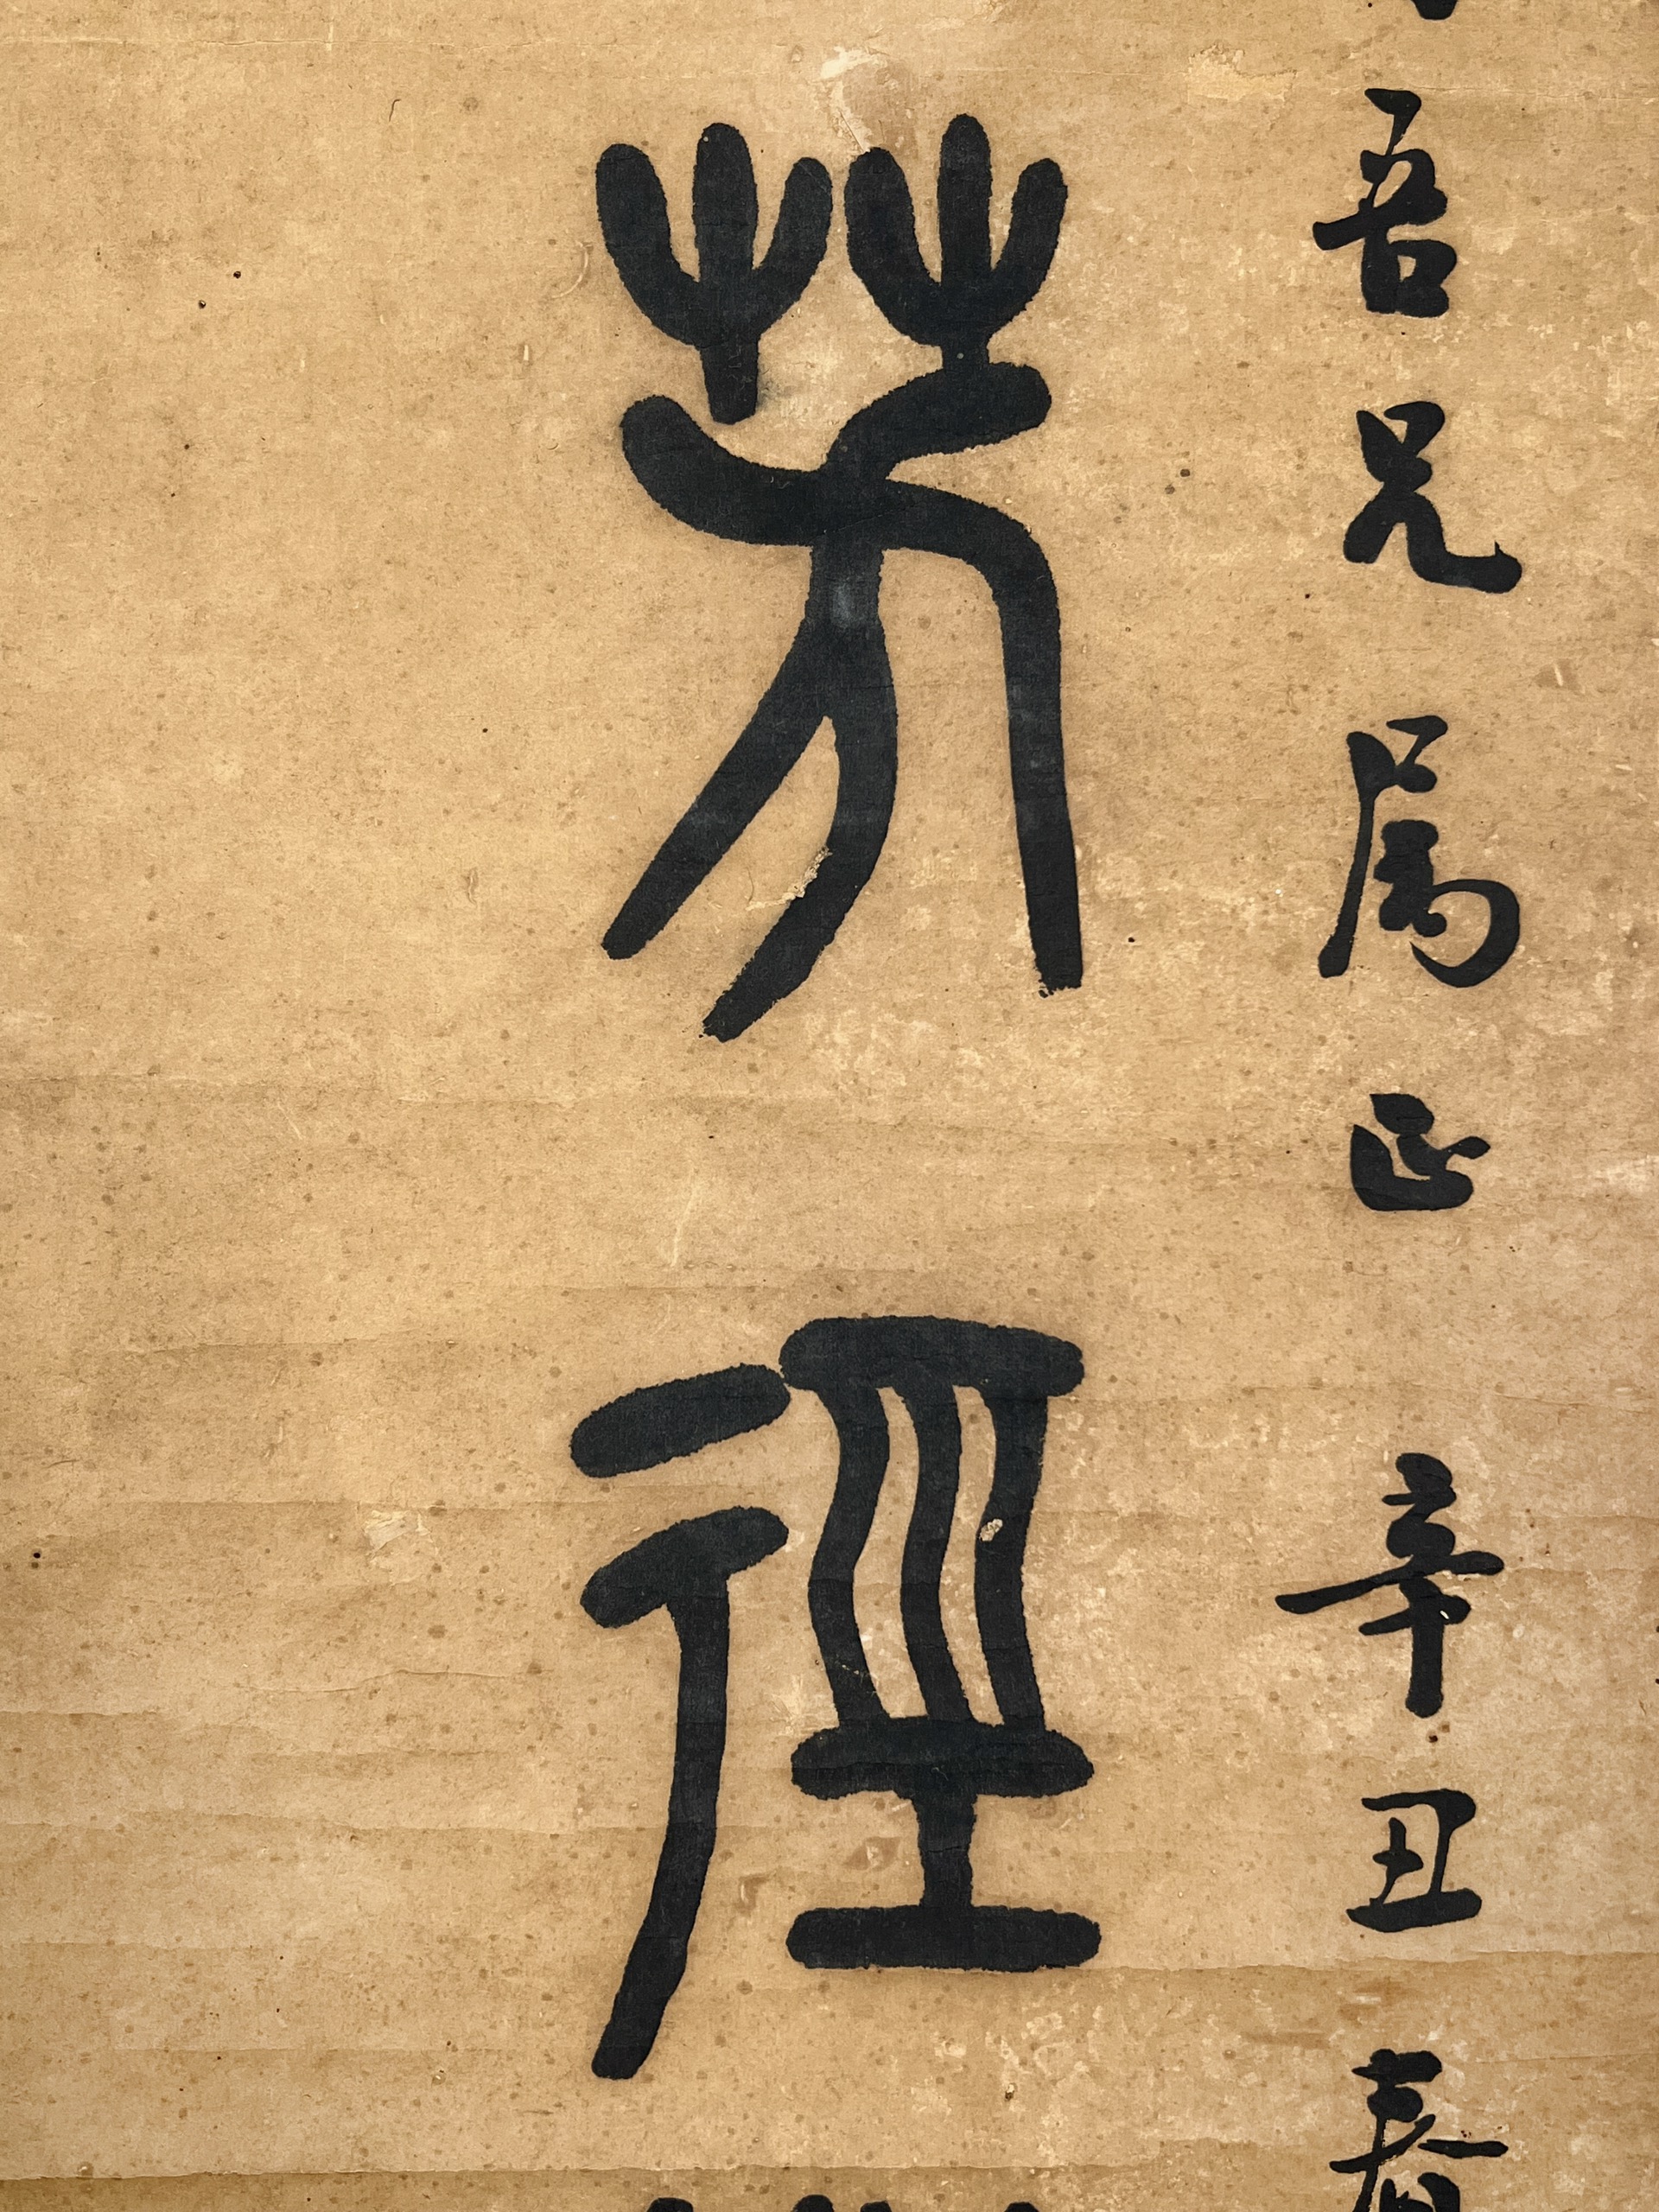 吾兄属正辛丑春
芳徑